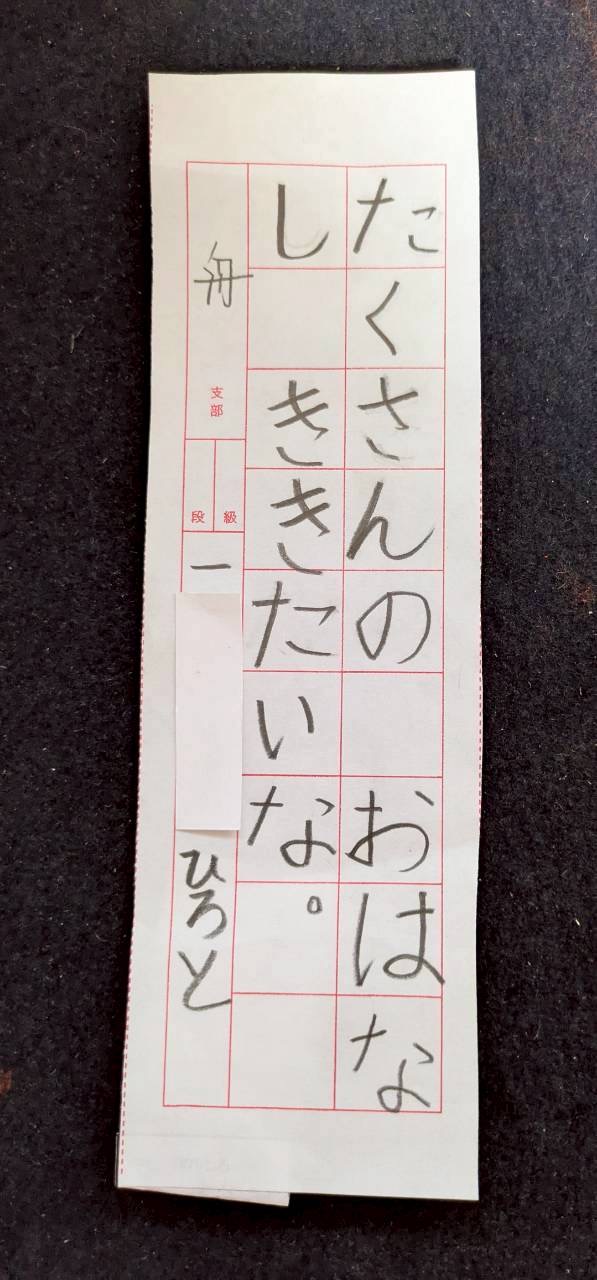 たくさんの　おはな
し　ききたいな。
舟 支部
段 級
一 ひろと